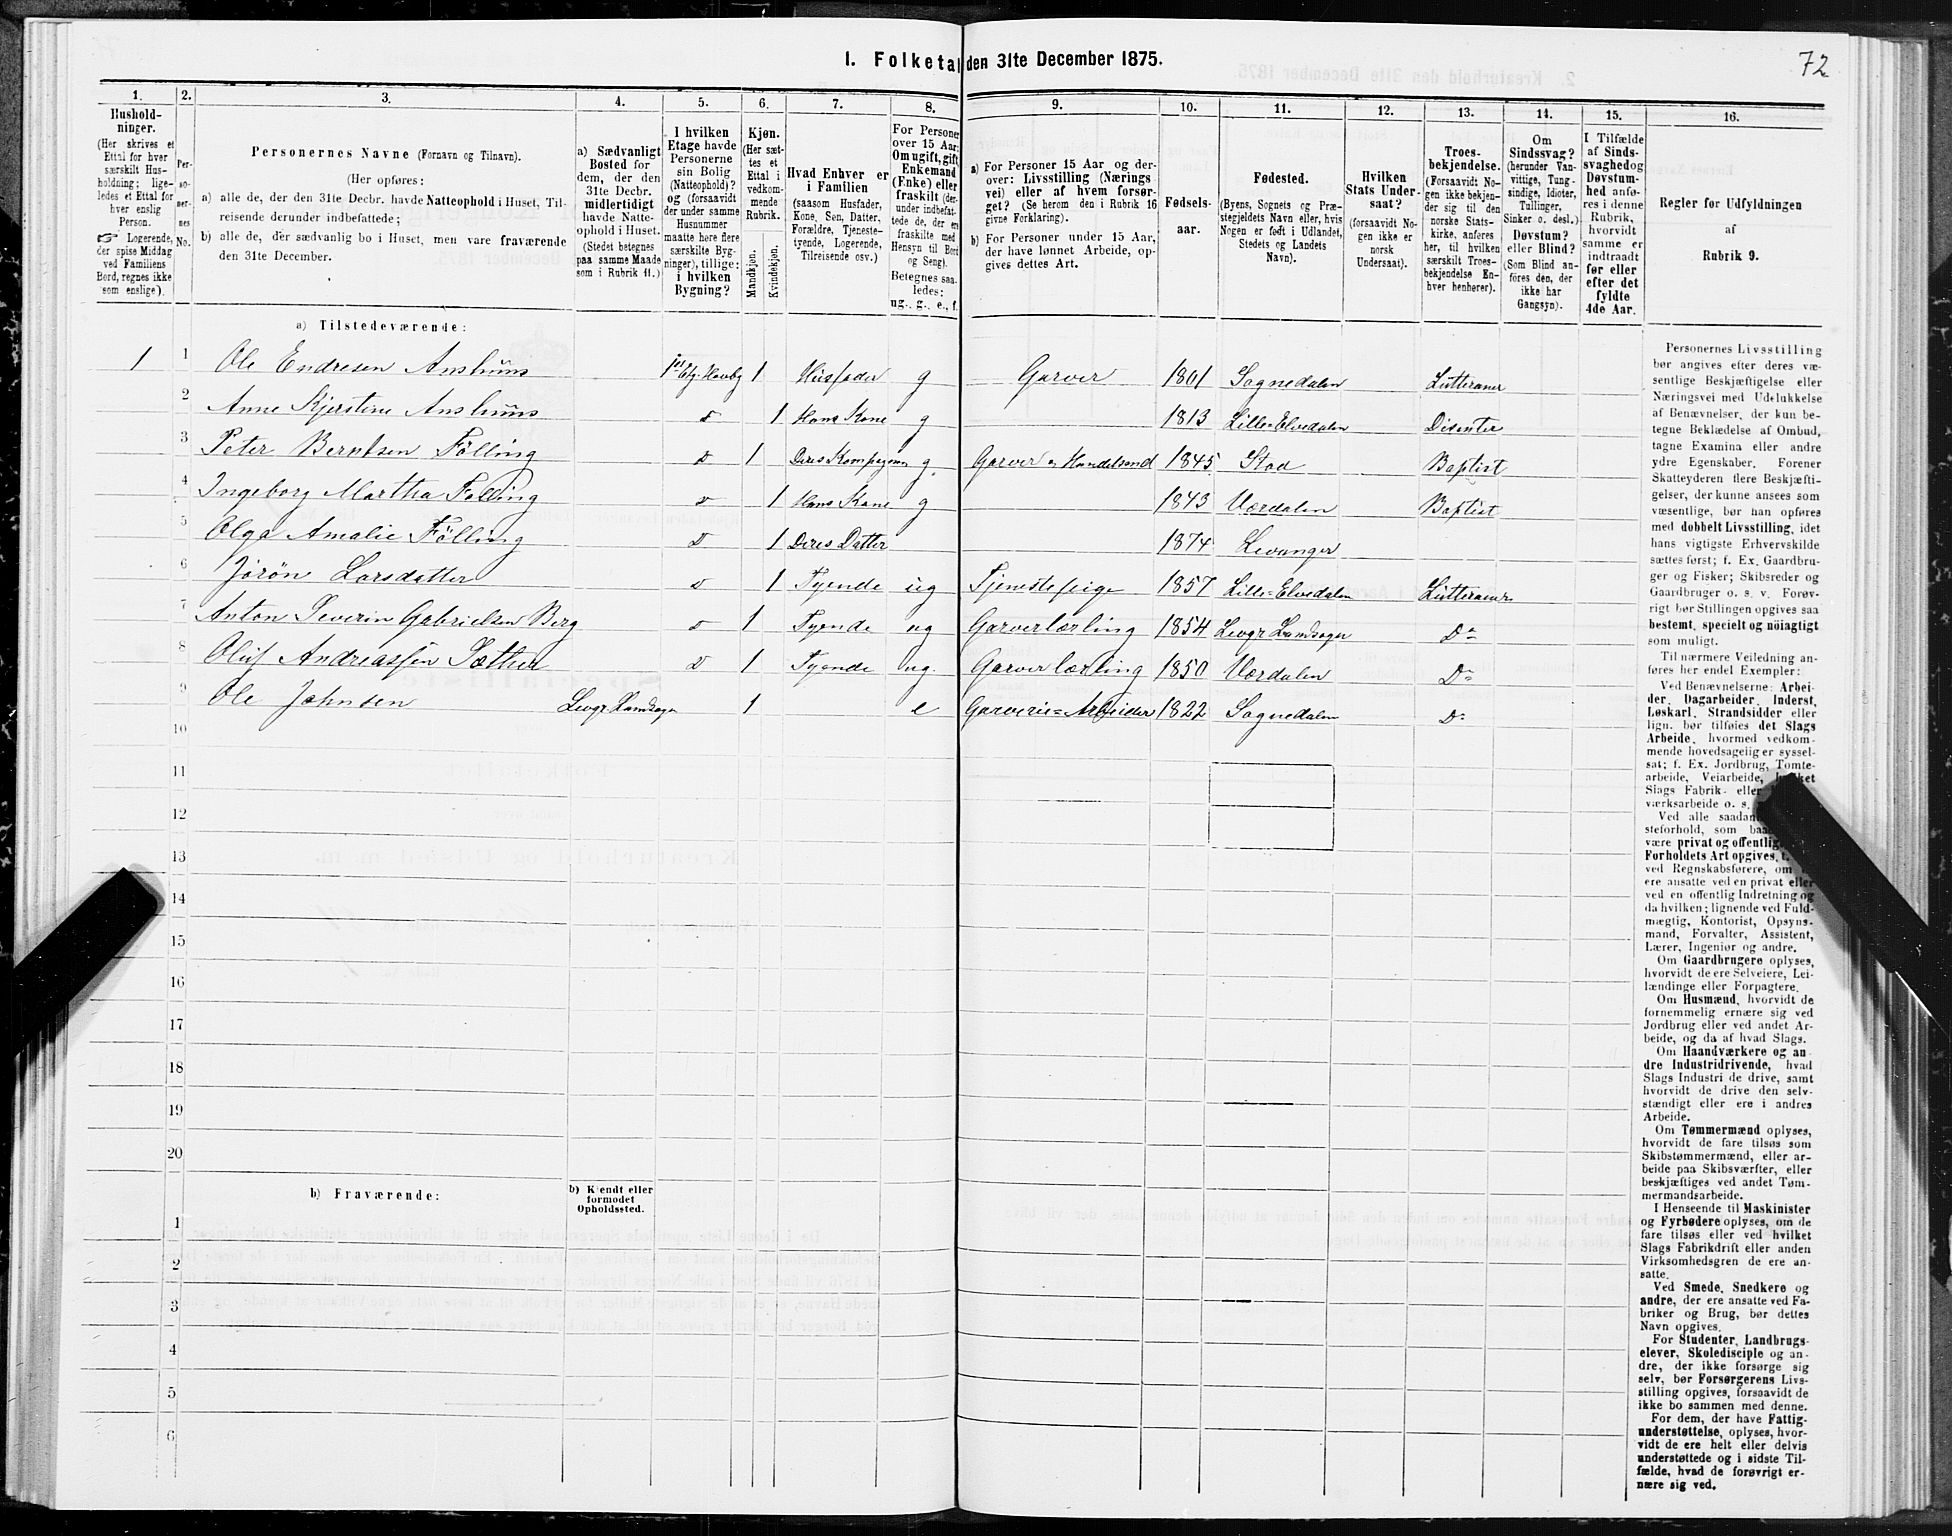 72
I. Folketal den 31te December 1875.
1. 2. 3. 4. 5. 6. 7. 8. 9. 10. 11. 12. 13. 14. 15. 16.
Husholdninger.
(Her skrives et
Ettal for hver
særskilt Hus-
holdning; lige-
ledes et Ettal for
hver enslig
Person.
☞ Logerende,
der spise Middag
ved Familiens
Bord, regnes ikke
som enslige).
Per-
so-
ner-
nes
No.
Personernes Navne (Fornavn og Tilnavn).
(Her opføres:
a) alle de, der den 31te Decbr. havde Natteophold i Huset, Til-
reisende derunder indbefattede;
b) alle de, der sædvanlig bo i Huset, men vare fraværende
den 31te December.
a) Sædvanligt
Bosted for
dem, der den
31te Decbr.
midlertidigt
havde Natte-
ophold i Huset.
(Stedet betegnes
paa samme Maade
som i Rubrik 11.)
I hvilken
Etage havde
Personerne
sin Bolig
(Natteophold)?
og (forsaavidt
der under samme
Husnummer
maatte høre flere
særskilte Byg-
ninger), tillige:
i hvilken
Bygning?
Kjøn.
(Her sæt-
tes et
Ettal i
vedkom-
mende
Rubrik.
Mandkjøn.
Kvindekjøn.
Hvad Enhver er
i Familien
(saasom Husfader,
Kone, Søn, Datter,
Forældre, Tjeneste-
tyende, Logerende,
Tilreisende osv.)
For Personer
over 15 Aar:
Om ugift, gift,
Enkemand
(Enke) eller
fraskilt (der-
under indbefat-
tede de, der ere
fraskilte med
Hensyn til Bord
og Seng).
Betegnes saa-
ledes:
ug., g., e., f.
a) For Personer 15 Aar og der-
over: Livsstilling (Nærings-
vei) eller af hvem forsør-
get? (Se herom den i Rubrik 16
givne Forklaring).
b) For Personer under 15 Aar,
der have lønnet Arbeide, op-
gives dettes Art.
Fødsels-
aar.
Fødested.
(Byens, Sognets og Præ-
stegjeldets Navn eller, hvis
Nogen er født i Udlandet,
Stedets og Landets
Navn).
Hvilken
Stats Under-
saat?
(forsaavidt No-
gen ikke er
norsk
Undersaat).
Troes-
bekjendelse.
(Forsaavidt No-
gen ikke bekjen-
der sig til den
norske Stats-
kirke, anføres
her, til hvilken
særskilt Troes-
bekjendelse En-
hver henhører).
Om
Sindssvag?
(herunder Van-
vittige, Tung-
sindige, Idioter,
Tullinger,
Sinker o. desl.)
Døvstum?
eller Blind?
(Som Blind an-
føres den, der
ikke har
Gangsyn).
I Tilfælde
af Sinds-
svaghedog
Døvstum-
hed anfø-
res i denne
Rubrik,
hvorvidt
samme er
indtraadt
før eller
efter det
fyldte
4de Aar.
Regler for Udfyldningen
af
Rubrik 9.
a) Tilstedeværende:
1 1 Ole Endresen 1ste Etg. Hovbg 1 Husfader g Garver 1801 Sognedalen Lutteraner
2 Anne Kjerstine D 1 Hans Kone g 1813 Lille-Elvedalen Disenter
3 Peter Berntsen Fölling D 1 Deres g Garver og 1845 Stod Baptist
4 Ingeborg Martha Folling D 1 Hans Kone g 1843 Værdalen Baptist
5 Olga Amalie Fölling D 1 Deres Datter 1874 Levanger
6 Jörön Larsdatter D 1 Tyende ug Tjenestepige 1857 Lille-Elvedalen Lutteraner
7 Anton Severin Gabrielsen Berg D 1 Tyende ug Garverlærling 1854 Levgr Landsogn Do
8 Oluf Andreassen Sæther D 1 Tyende ug. Garverlærling 1850 Værdalen Do
9 Ole Johnsen Levgr Landsogn 1 e Garverie-Arbeider 1822 Sognedalen Do
10
11
12
13
14
15
16
17
18
19
20
b) Fraværende:
b) Kjendt eller
formodet
Opholdssted.
1
2
3
4
5
6
Personernes Livsstilling
bør angives efter deres væ-
sentlige Beskjæftigelse eller
Næringsvei med Udelukkelse
af Benævnelser, der kun be-
tegne Beklædelse af Ombud,
tagne Examina eller andre
ydre Egenskaber. Forener
Skatteyderen flere Beskjæfti-
gelser, der kunne ansees som
væsentlige, bør han opføres
med dobbelt Livsstilling, idet
hans vigtigste Erhvervskilde
sættes først; f. Ex. Gaardbru-
ger og Fisker; Skibsreder og
Gaardbruger o. s. v. Forøv-
rigt bør Stillingen opgives saa
bestemt, specielt og nöiagtigt
som muligt.
Til nærmere Veiledning an-
føres her endel Exempler:
Ved Benævnelserne: Arbei-
der, Dagarbeider, Inderst,
Løskarl, Strandsidder eller
lign. bør tilføies det Slags
Arbeide, hvormed vedkom-
mende hovedsagelig er syssel-
sat; f. Ex. Jordbrug, Tomte-
arbeide, Veiarbeide,
Slags Fabrik- eller
værksarbeide o. s.
Ved alle saadan
steforhold, som
være privat og offentlig
Forholdets Art opgives,
ved Regnskabsførere, om
ere ansatte ved en privat eller
ved en offentlig Indretning og
da hvilken; lignende ved Fuld-
mægtig, Kontorist, Opsyns-
mand, Forvalter, Assistent,
Lærer, Ingeniør og andre.
Om Gaardbrugere oplyses,
hvorvidt de ere Selveiere, Lei-
lændinge eller Forpagtere.
Om Husmænd, hvorvidt de
fornemmelig ernære sig ved
Jordbrug eller ved andet Ar-
beide, og da af hvad Slags.
Om Haandværkere og an-
dre Industridrivende, hvad
Slags Industri de drive, samt
hvorvidt de drive den selv-
stændigt eller ere i andres
Arbeide.
Om Tømmermænd oplyses,
hvorvidt de fare tilsøs som
Skibstømmermænd, eller ar-
beide paa Skibsværfter, eller
beskjæftiges ved andet Tøm-
mermandsarbeide.
I Henseende til Maskinister
og Fyrbødere oplyses, om de
fare tilsøs eller ved hvilket
Slags Fabrikdrift eller anden
Virksomhedsgren de ere an-
satte.
Ved Smede, Snedkere og
andre, der ere ansatte ved Fa-
briker og Brug, bør dettes
Navn opgives.
For Studenter, Landbrugs-
elever, Skoledisciple og an-
dre, der ikke forsørge sig
selv, bør Forsørgerens Livs-
stilling opgives, forsaavidt de
ikke bo sammen med denne.
For dem, der have Fattig-
understøttelse, oplyses, hvor-
vidt de ere helt eller delvis
understøttede og i sidste Til-
fælde, hvad de forøvrigt er-
nære sig ved.